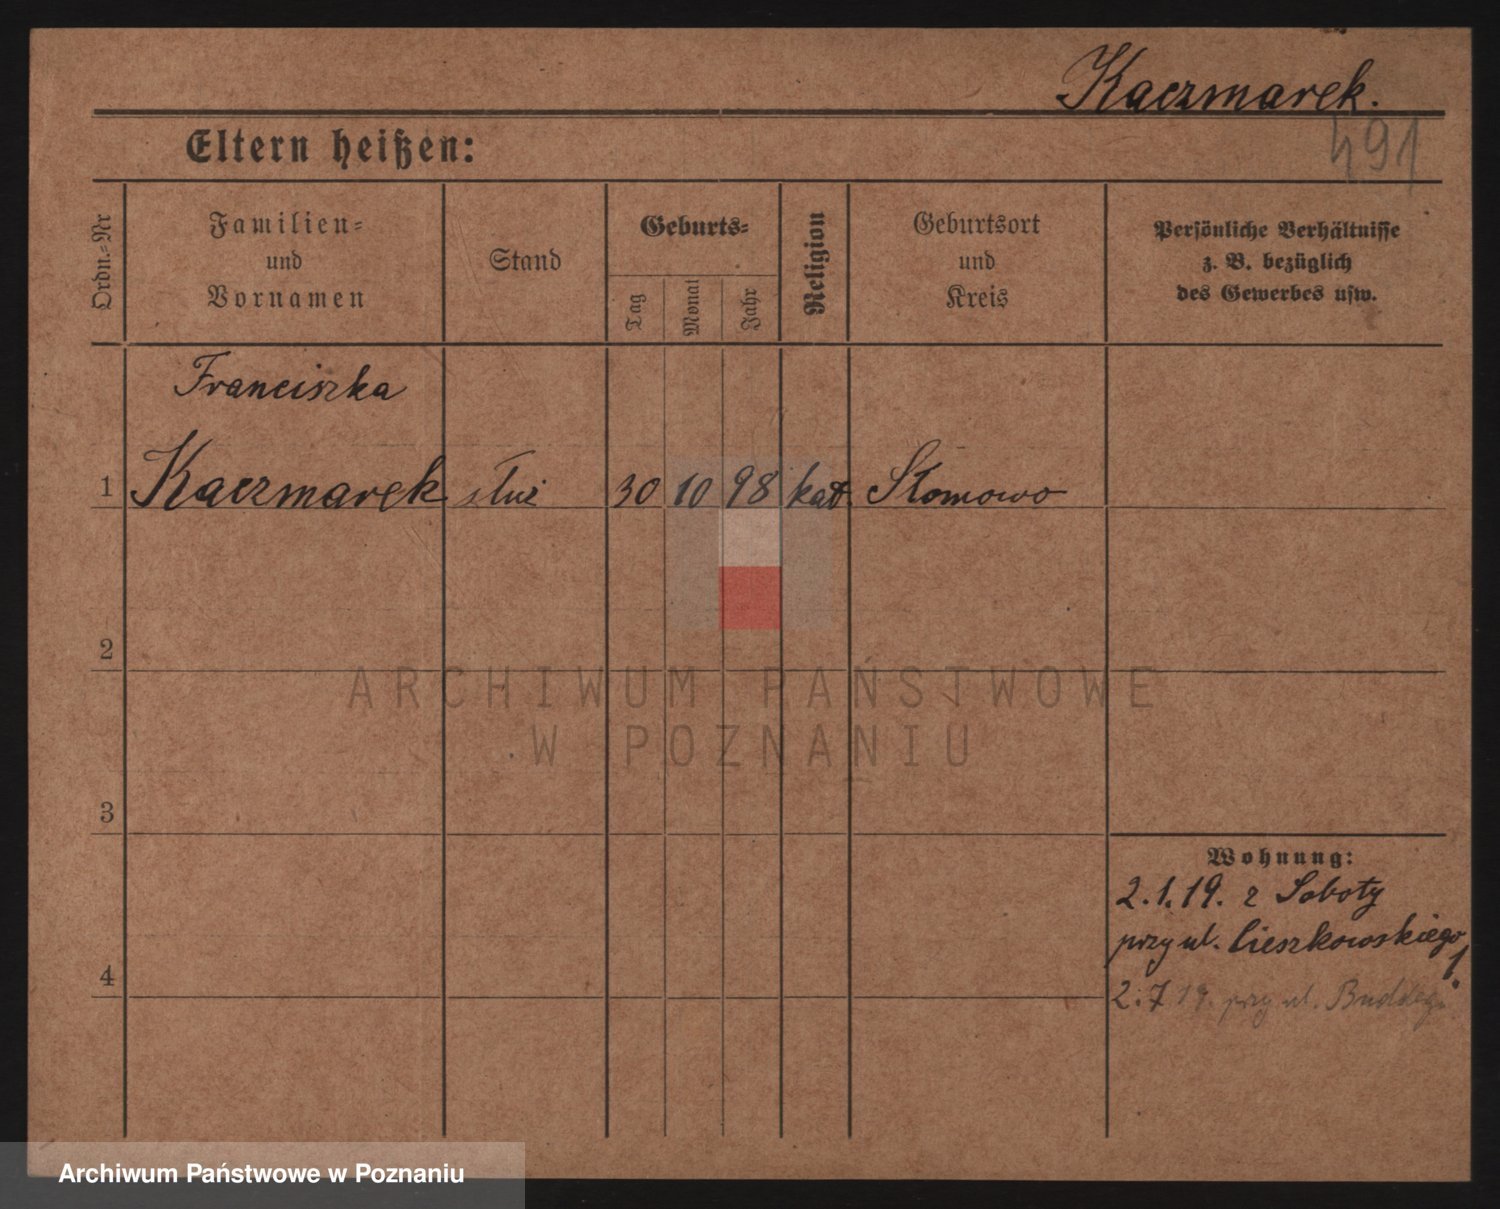 Kaczmarek.
491
Eltern heißen:
Ordn.=Nr
Familien=
und
Vornamen
Stand
Geburts=
Tag
Monat
Jahr
Religion
Geburtsort
und
Kreis
Persönliche Verhältnisse
z. B. bezüglich
des Gewerbes usw.
Franciszka
1 Kaczmarek służ 30 10 98 kat. Słomowo
2
3
4
Wohnung:
2.1.19. z Soboty
przy ul. Cieszkowskiego
1
2.7 19. przy ul.
ARCHIWUM PAŃSTWOWE
W POZNANIU
Archiwum Państwowe w Poznaniu